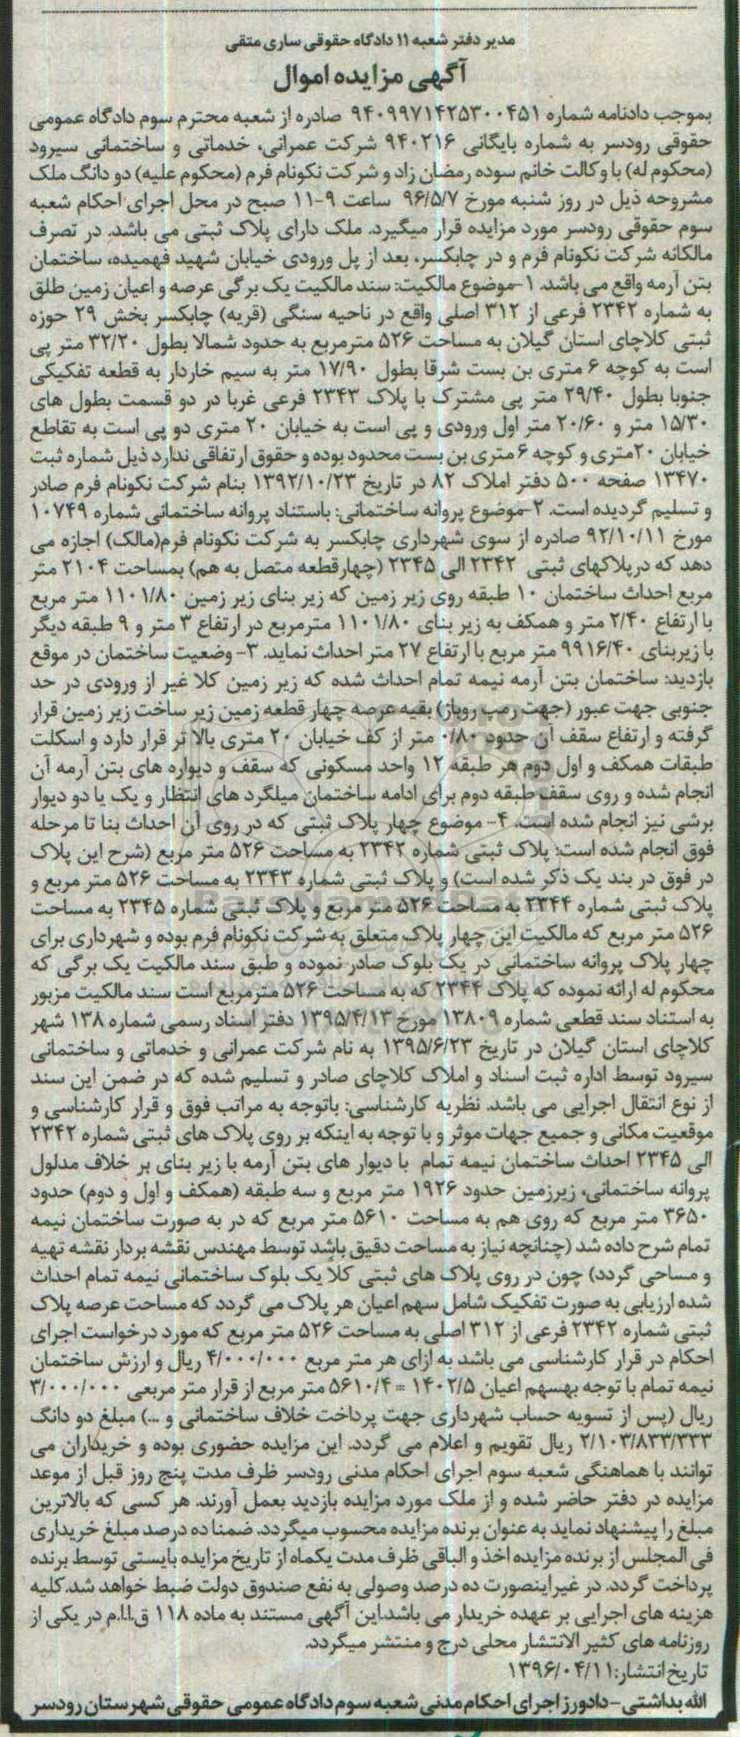 مدیر دفتر شعبه ۱۱ دادگاه حقوقی ساری متقی
آگهی مزایده اموال
بموجب دادنامه شماره ۹۴۰۹۹۷۱۴۲۵۳۰۰۴۵۱ صادره از شعبه محترم سوم دادگاه عمومی
حقوقی رودسر به شماره بایگانی ۹۴۰۲۱۶ شرکت عمرانی، خدماتی و ساختمانی سیرود
(محکوم له) با وکالت خانم سوده رمضان زاد و شرکت نکونام فرم (محکوم علیه) دو دانگ ملک
مشروحه ذیل در روز شنبه مورخ ۹۶/۵/۷ ساعت ۹-۱۱ صبح در محل اجرای احکام شعبه
سوم حقوقی رودسر مورد مزایده قرار میگیرد. ملک دارای پلاک ثبتی می باشد. در تصرف
مالکانه شرکت نکونام فرم و در چابکسر، بعد از پل ورودی خیابان شهید فهمیده، ساختمان
بتن آرمه واقع می باشد. ۱-موضوع مالکیت: سند مالکیت یک برگی عرصه و اعیان زمین طلق
به شماره ۲۳۴۲ فرعی از ۳۱۲ اصلی واقع در ناحیه سنگی (قریه) چابکسر بخش ۲۹ حوزه
ثبتی کلاچای استان گیلان به مساحت ۵۲۶ مترمربع به حدود شمالا بطول ۳۲/۲۰ متر پی
است به کوچه ۶ متری بن بست شرقا بطول ۱۷/۹۰ متر به سیم خاردار به قطعه تفکیکی
جنوبا بطول ۲۹/۴۰ متر پی مشترک با پلاک ۲۳۴۳ فرعی غربا در دو قسمت بطول های
۱۵/۳۰ متر و ۲۰/۶۰ متر اول ورودی و پی است به خیابان ۲۰ متری دو پی است به تقاطع
خیابان ۲۰متری و کوچه ۶ متری بن بست محدود بوده و حقوق ارتفاقی ندارد ذیل شماره ثبت
۱۳۴۷۰ صفحه ۵۰۰ دفتر املاک ۸۲ در تاریخ ۱۳۹۲/۱۰/۲۳ بنام شرکت نکونام فرم صادر
و تسلیم گردیده است. ۲-موضوع پروانه ساختمانی: باستناد پروانه ساختمانی شماره ۱۰۷۴۹
مورخ ۹۲/۱۰/۱۱ صادره از سوی شهرداری چابکسر به شرکت نکونام فرم(مالک) اجازه می
دهد که درپلاکهای ثبتی ۲۳۴۲ الی ۲۳۴۵ (چهارقطعه متصل به هم) بمساحت ۲۱۰۴ متر
مربع احداث ساختمان ۱۰ طبقه روی زیر زمین که زیر بنای زیر زمین ۱۱۰۱/۸۰ متر مربع
با ارتفاع ۲/۴۰ متر و همکف به زیر بنای ۱۱۰۱/۸۰ مترمربع در ارتفاع ۳ متر و ۹ طبقه دیگر
با زیربنای ۹۹۱۶/۴۰ متر مربع با ارتفاع ۲۷ متر احداث نماید. ۳- وضعیت ساختمان در موقع
بازدید: ساختمان بتن آرمه نیمه تمام احداث شده که زیر زمین کلا غیر از ورودی در حد
جنوبی جهت عبور (جهت رمپ روباز) بقیه عرصه چهار قطعه زمین زیر ساخت زیر زمین قرار
گرفته و ارتفاع سقف آن حدود ۰/۸۰ متر از کف خیابان ۲۰ متری بالا تر قرار دارد و اسکلت
طبقات همکف و اول دوم هر طبقه ۱۲ واحد مسکونی که سقف و دیواره های بتن آرمه آن
انجام شده و روی سقف طبقه دوم برای ادامه ساختمان میلگرد های انتظار و یک یا دو دیوار
برشی نیز انجام شده است. ۴- موضوع چهار پلاک ثبتی که در روی آن احداث بنا تا مرحله
فوق انجام شده است: پلاک ثبتی شماره ۲۳۴۲ به مساحت ۵۲۶ متر مربع (شرح این پلاک
در فوق در بند یک ذکر شده است) و پلاک ثبتی شماره ۲۳۴۳ به مساحت ۵۲۶ متر مربع و
پلاک ثبتی شماره ۲۳۴۴ به مساحت ۵۲۶ متر مربع و پلاک ثبتی شماره ۲۳۴۵ به مساحت
۵۲۶ متر مربع که مالکیت این چهار پلاک متعلق به شرکت نکونام فرم بوده و شهرداری برای
چهار پلاک پروانه ساختمانی در یک بلوک صادر نموده و طبق سند مالکیت یک برگی که
محکوم له ارائه نموده که پلاک ۲۳۴۴ که به مساحت ۵۲۶ مترمربع است سند مالکیت مزبور
به استناد سند قطعی شماره ۱۳۸۰۹ مورخ ۱۳۹۵/۴/۱۳ دفتر اسناد رسمی شماره ۱۳۸ شهر
کلاچای استان گیلان در تاریخ ۱۳۹۵/۶/۲۳ به نام شرکت عمرانی و خدماتی و ساختمانی
سیرود توسط اداره ثبت اسناد و املاک کلاچای صادر و تسلیم شده که در ضمن این سند
از نوع انتقال اجرایی می باشد. نظریه کارشناسی: باتوجه به مراتب فوق و قرار کارشناسی و
موقعیت مکانی و جمیع جهات موثر و با توجه به اینکه بر روی پلاک های ثبتی شماره ۲۳۴۲
الی ۲۳۴۵ احداث ساختمان نیمه تمام با دیوار های بتن آرمه با زیر بنای بر خلاف مدلول
پروانه ساختمانی، زیرزمین حدود ۱۹۲۶ متر مربع و سه طبقه (همکف و اول و دوم) حدود
۳۶۵۰ متر مربع که روی هم به مساحت ۵۶۱۰ متر مربع که در به صورت ساختمان نیمه
تمام شرح داده شد (چنانچه نیاز به مساحت دقیق باشد توسط مهندس نقشه بردار نقشه تهیه
و مساحی گردد) چون در روی پلاک های ثبتی کلا یک بلوک ساختمانی نیمه تمام احداث
شده ارزیابی به صورت تفکیک شامل سهم اعیان هر پلاک می گردد که مساحت عرصه پلاک
ثبتی شماره ۲۳۴۲ فرعی از ۳۱۲ اصلی به مساحت ۵۲۶ متر مربع که مورد درخواست اجرای
احکام در قرار کارشناسی می باشد به ازای هر متر مربع ۴/۰۰۰/۰۰۰ ریال و ارزش ساختمان
نیمه تمام با توجه بهسهم اعیان ۱۴۰۲/۵ = ۵۶۱۰/۴ متر مربع از قرار متر مربعی ۳/۰۰۰/۰۰۰
ریال (پس از تسویه حساب شهرداری جهت پرداخت خلاف ساختمانی و ...) مبلغ دو دانگ
۲/۱۰۳/۸۳۳/۳۳۳ ریال تقویم و اعلام می گردد. این مزایده حضوری بوده و خریداران می
توانند با هماهنگی شعبه سوم اجرای احکام مدنی رودسر ظرف مدت پنج روز قبل از موعد
مزایده در دفتر حاضر شده و از ملک مورد مزایده بازدید بعمل آورند. هر کسی که بالاترین
مبلغ را پیشنهاد نماید به عنوان برنده مزایده محسوب میگردد. ضمنا ده درصد مبلغ خریداری
فی المجلس از برنده مزایده اخذ و الباقی ظرف مدت یکماه از تاریخ مزایده بایستی توسط برنده
پرداخت گردد. در غیراینصورت ده درصد وصولی به نفع صندوق دولت ضبط خواهد شد.کلیه
هزینه های اجرایی بر عهده خریدار می باشد.این آگهی مستند به ماده ۱۱۸ ق.ا.ا.م در یکی از
روزنامه های کثیر الانتشار محلی درج و منتشر میگردد.
تاریخ انتشار: ۱۳۹۶/۰۴/۱۱
الله بداشتی - دادورز اجرای احکام مدنی شعبه سوم دادگاه عمومی حقوقی شهرستان رودسر